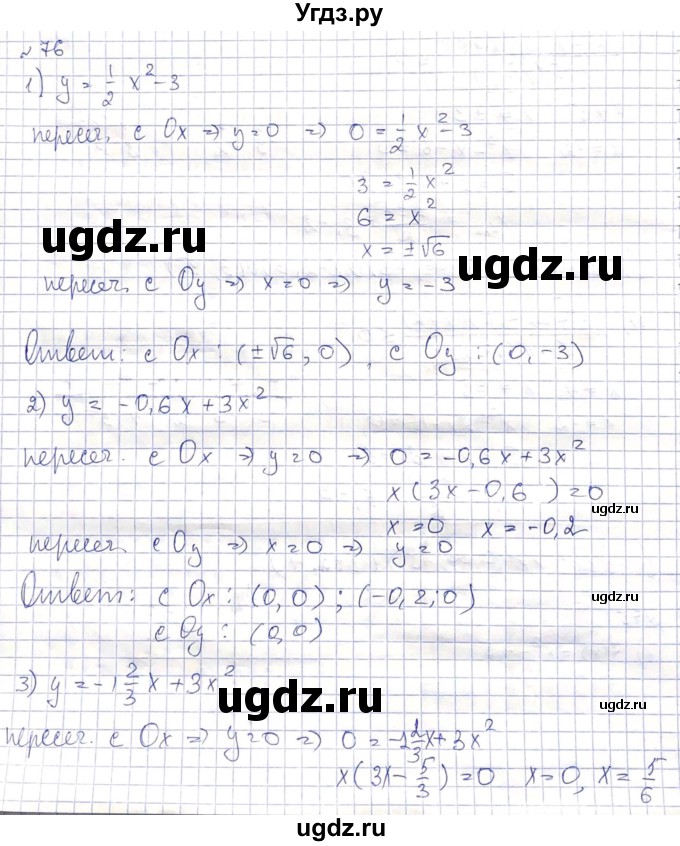 Угдз.ру
№76
1) y = 1/2 x² - 3
пересеч. с Ox => y=0 => 0 = 1/2 x² - 3
3 = 1/2 x²
6 = x²
ugdz.ru
x = ±√6
ugdz.ru
пересеч. с Oy => x=0 => y = -3
Ответ: с Ox : (±√6, 0), с Oy : (0, -3)
2) y = -0,6x + 3x²
пересеч. с Ox => y=0 => 0 = -0,6x + 3x²
x(3x - 0,6) = 0
ugdz.ru
x=0 x = -0,2
пересеч. с Oy => x=0 => y=0
Ответ: с Ox : (0, 0); (-0,2; 0)
с Oy : (0,0)
3) y = -1 2/3 x + 3x²
ugdz.ru
ugdz.ru
пересеч. с Ox => y=0 => 0 = -1 2/3 x + 3x²
x(3x - 5/3) = 0 x=0, x = 5/6
ugdz.ru